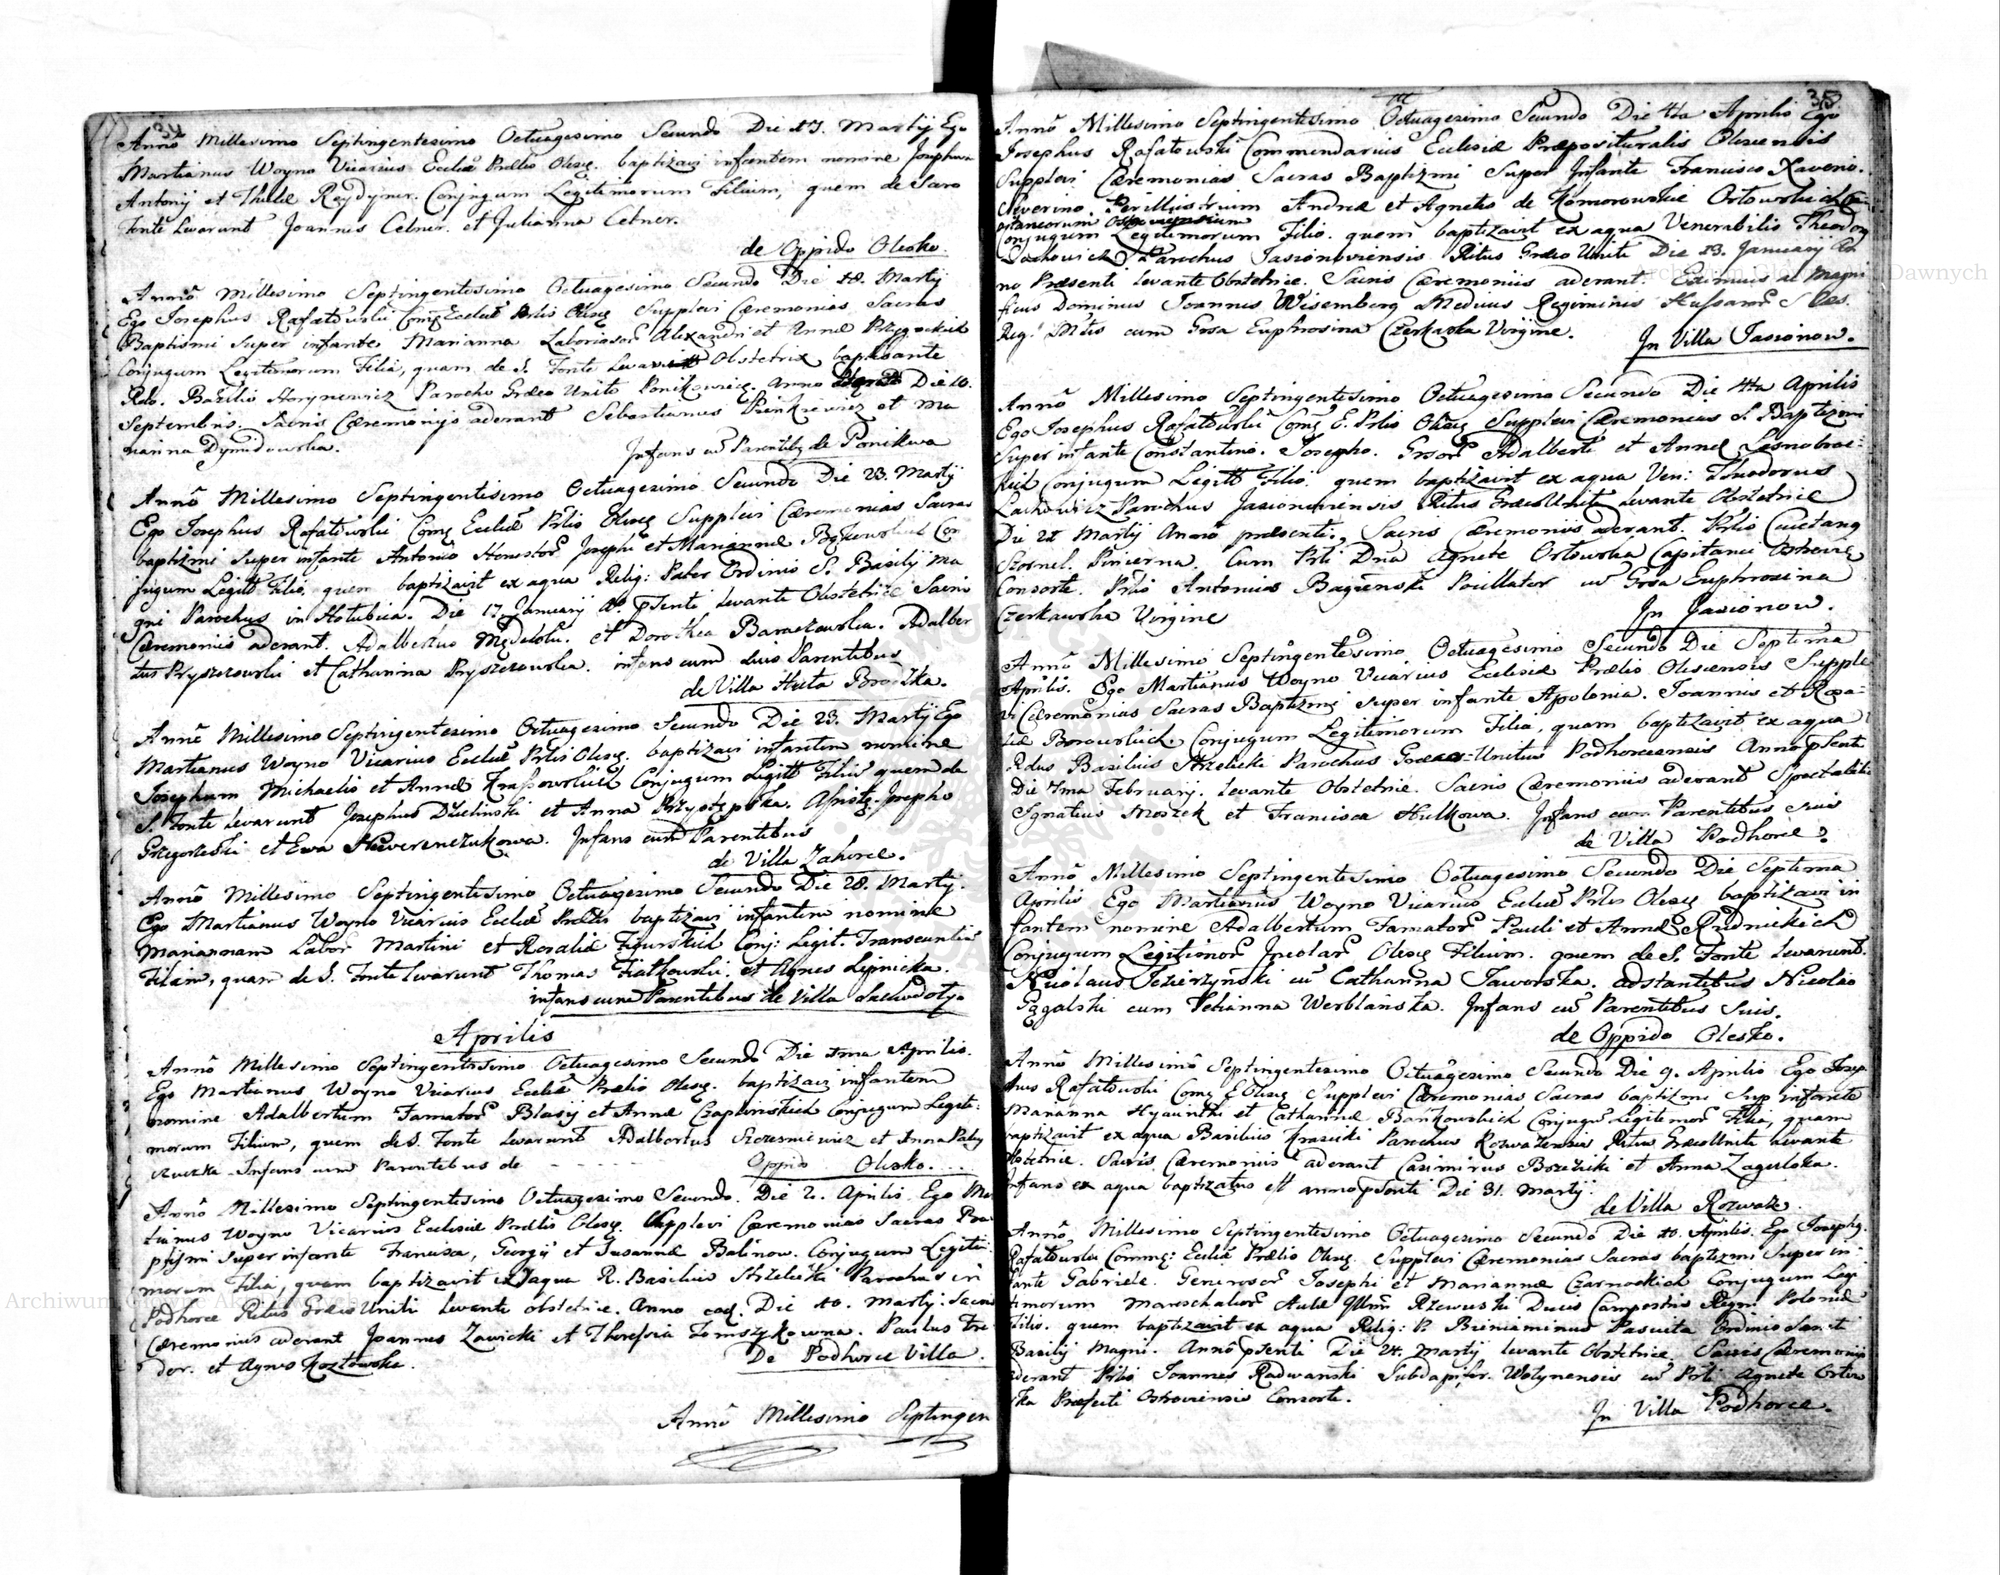 34
Anno Millesimo Septingentesimo Octuagesimo Secundo Die 17. Martij Ego
Martianus Woyno Vicarius Eccliæ Prælis Olesc. baptizavi infantem nomine Josephum
Antonij et Theclæ Conjugum Legitimorum Filium, quem de Sacro
Fonte Levarunt Joannes Celner. et Julianna Celner.
de Oppido Olesko.
Anno Millesimo Septingentesimo Octuagesimo Secundo Die 18. Martij
Ego Josephus Rafałowski Ecclæ Prlis Olesc Supplevi Cæremonias Sacras
Baptismi Super infante Marianna Laboriosor Alexandri et Annæ
Conjugum Legitimorum Filia, quam de S. Fonte Levavit Obstetrix baptisante
Rdo. Basilio Horynewicz Parocho Græco Unito Ponikowiez. Anno Die 10.
Septembris. Sacris Cæremonijs aderant Sebastianus Pinkiewicz et Ma
rianna Dymidowska.
Infans cu Parentibq de Ponikwa
Anno Millesimo Septingentesimo Octuagesimo Secundo Die 23. Martij
Ego Josephus Rafałowski Comę Eccliæ Prlis Olesc Supplevi Cæremonias Sacras
baptizmi Super infante Antonio Honestor Josephi et Mariannæ Con
jugum Legitt Filio, quem baptizavit ex aqua Relig: Pater Ordinis S. Basilij Ma
gni Parochus in Hołubica. Die 17 January Ao. pstenti Levante Obstetrice Sacris
Cæremoniis aderant. Adalbertus et Dorothea Baraczowska. Adalber
tus Pryszczowski et Catharina Pryszczowska. infans cum Suis Parentibus
de Villa Huta Brodzka.
Anno Millesimo Septingentesimo Octuagesimo Secundo Die 23. Martij Ego
Martianus Woyno Vicarius Eccliæ Prlis Olesc. baptizavi infantem nomine
Josephum Michaelis et Annæ Conjugum Legitt Filiu quem de
S. Fonte Levarunt Josephus Dzielinski et Anna Josepho
et Ewa Infans cum Parentibus
de Villa Zahorce.
Anno Millesimo Septingentesimo Octuagesimo Secundo Die 28. Martij.
Ego Martianus Woyno Vicarius Eccliæ Prælis baptizavi infantem nomine
Mariannam Labor Martini et Rosaliæ Figurskich Conj: Legit. Transeuntiu
Filiam, quam de S. Fonte Levarunt Thomas Fiałkowski. et Agnes Lipnicka.
infans cum Parentibus de Villa
Aprilis
Anno Millesimo Septingentesimo Octuagesimo Secundo Die 1ma Aprilis.
Ego Martianus Woyno Vicarius Eccliæ Prælis Olesc. baptizavi infantem
nomine Adalbertum Famator Blasij et Annæ Czaplinskich Conjugum Legiti:
morum Filium, quem de S. Fonte Levarunt Adalbertus Szczesniewicz et Anna
Infans cum Parentibus de Oppido Olesko.
Anno Millesimo Septingentesimo Octuagesimo Secundo. Die 2. Aprilis Ego Mar
tianus Woyno Vicarius Ecclesiæ Prælis Olesc. Supplevi Cæremonias Sacras Ba
ptismi Super infante Francisca, Georgij et Susannæ Balinow. Conjugum Legiti:
morum Filia, quam baptizavit ex aqua R. Basilius Strzelecki Parochus in
Podhorce Ritus Græco Uniti Levante obstetrice. Anno eod. Die 10. Martij. Sacris
Cæremoniis aderant Joannes Zawicki et Theresia Paulus
et Agnes Kozłowska.
De Podhorce Villa.
Anno Millesimo Septingen
35
Anno Millesimo Septingentesimo Octuagesimo Secundo Die 4ta Aprilis Ego
Josephus Rafałowski Commendarius Ecclesiæ Præposituralis Olescensis
Supplevi Cæremonias Sacras Baptizmi Super Infante Francisco Xaverio.
Severino Perillustrium Andreæ et Agnetis de Komorowskie Orłowskich
Conjugum Legitimorum Filio. quem baptizavit ex aqua Venerabilis Theodor
Lachowicz Parochus Jasionoviensis Ritus Græco Uniti Die 13. January An
no Præsenti Levante Obstetrice. Sacris Cæremoniis aderant. Eximius ac Magni
ficus Dominus Joannes Wisemberg Medicus Regiminis Hussaror
Reg. Mtis cum Grosa Euphrosina Czerkaska Virgine.
In Villa Jasionow.
Anno Millesimo Septingentesimo Octuagesimo Secundo Die 4ta Aprilis
Ego Josephus Rafałowski Comę E. Prlis Olesc Supplevi Cæremonias S. Baptizmi
Super infante Constantino. Josepho. Grosor Adalberti et Annæ
Conjugum Legitt Filio. quem baptizavit ex aqua Ven: Theodorus
Lachowicz Parochus Jasionoviensis Ritus Græco Uniti Levante Obstetrice
Die 21 Martij Anno præsenti, Sacris Cæremoniis aderant. Prlis Caietang
Pincerna. Cum Prli Dna Agnete Orłowska Capitanei
Consorte. Prlis Antonius Bagenski Pocillator cu Grosa Euphrosina
Czerkawska Virgine
In Jasionow.
Anno Millesimo Septingentesimo Octuagesimo Secundo Die Septima
Aprilis. Ego Martianus Woyno Vicarius Ecclesiæ Prælis Olescensis Supple
vi Cæremonias Sacras Baptizmi Super infante Apolonia. Joannis et Rosa
liæ Borowskich Conjugum Legitimorum Filia, quam baptizavit ex aqua
Rdus Basilius Strzelecki Parochus Græco-Unitus Podhorcensis Anno pstenti
Die 7ma February. Levante Obstetrice. Sacris Cæremoniis aderant Spectabilis
Ignatius Moszek et Francisca Hulkowa. Infans cum Parentibus suis
de Villa Podhorce.
Anno Millesimo Septingentesimo Octuagesimo Secundo Die Septima
Aprilis Ego Martianus Woyno Vicarius Eccliæ Prlis Olesc baptizavi in
fantem nomine Adalbertum Famator Pauli et Annæ Rudnickich
Conjugum Legitimor Incolar Olesc Filium. quem de S. Fonte Levarunt.
Nicolaus Jezierzynski cu Catharina Jaworska. adstantibus Nicolao
cum Werblanska. Infans cu Parentibus Suis.
de Oppido Olesko.
Anno Millesimo Septingentesimo Octuagesimo Secundo Die 9. Aprilis Ego Josep
hus Rafałowski Comę E Olesc Supplevi Cæremonias Sacras baptizmi Sup infante
Marianna Hyacinthi et Catharinæ Bankowskich Conjugu Legitimor Filia, quam
baptizavit ex aqua Basilius Krasicki Parochus Rozwazensis Ritus Græco Uniti Levante
Obstetrice. Sacris Cæremoniis aderant Casimirus et Anna
Infans ex aqua baptizatus est anno pstenti Die 31. Martij.
de Villa Rozwaz.
Anno Millesimo Septingentesimo Octuagesimo Secundo Die 10. Aprilis. Ego Josephq
Rafałowski Commę: Eccliæ Prælis Olesc. Supplevi Cæremonias Sacras baptizmi Super in:
fante Gabriele. Generosor Josephi et Mariannæ Czarnockich Conjugum Legi
timorum Mareschalcor Aulæ Rzewuski Ducis Campestris Regni Poloniæ
Filio. quem baptizavit ex aqua Relig: P. Beniaminus Pascuta Ordinis Sancti
Basilij Magni. Anno pstenti Die 24. Martij Levante Obstetrice Sacris Cæremoniis
aderant Prlis Joannes Radwanski Subdapifer. Wołynensis cu Prli Agnete Orłow
ska Præfecti Ostroviensis Consorte.
In Villa Podhorce.